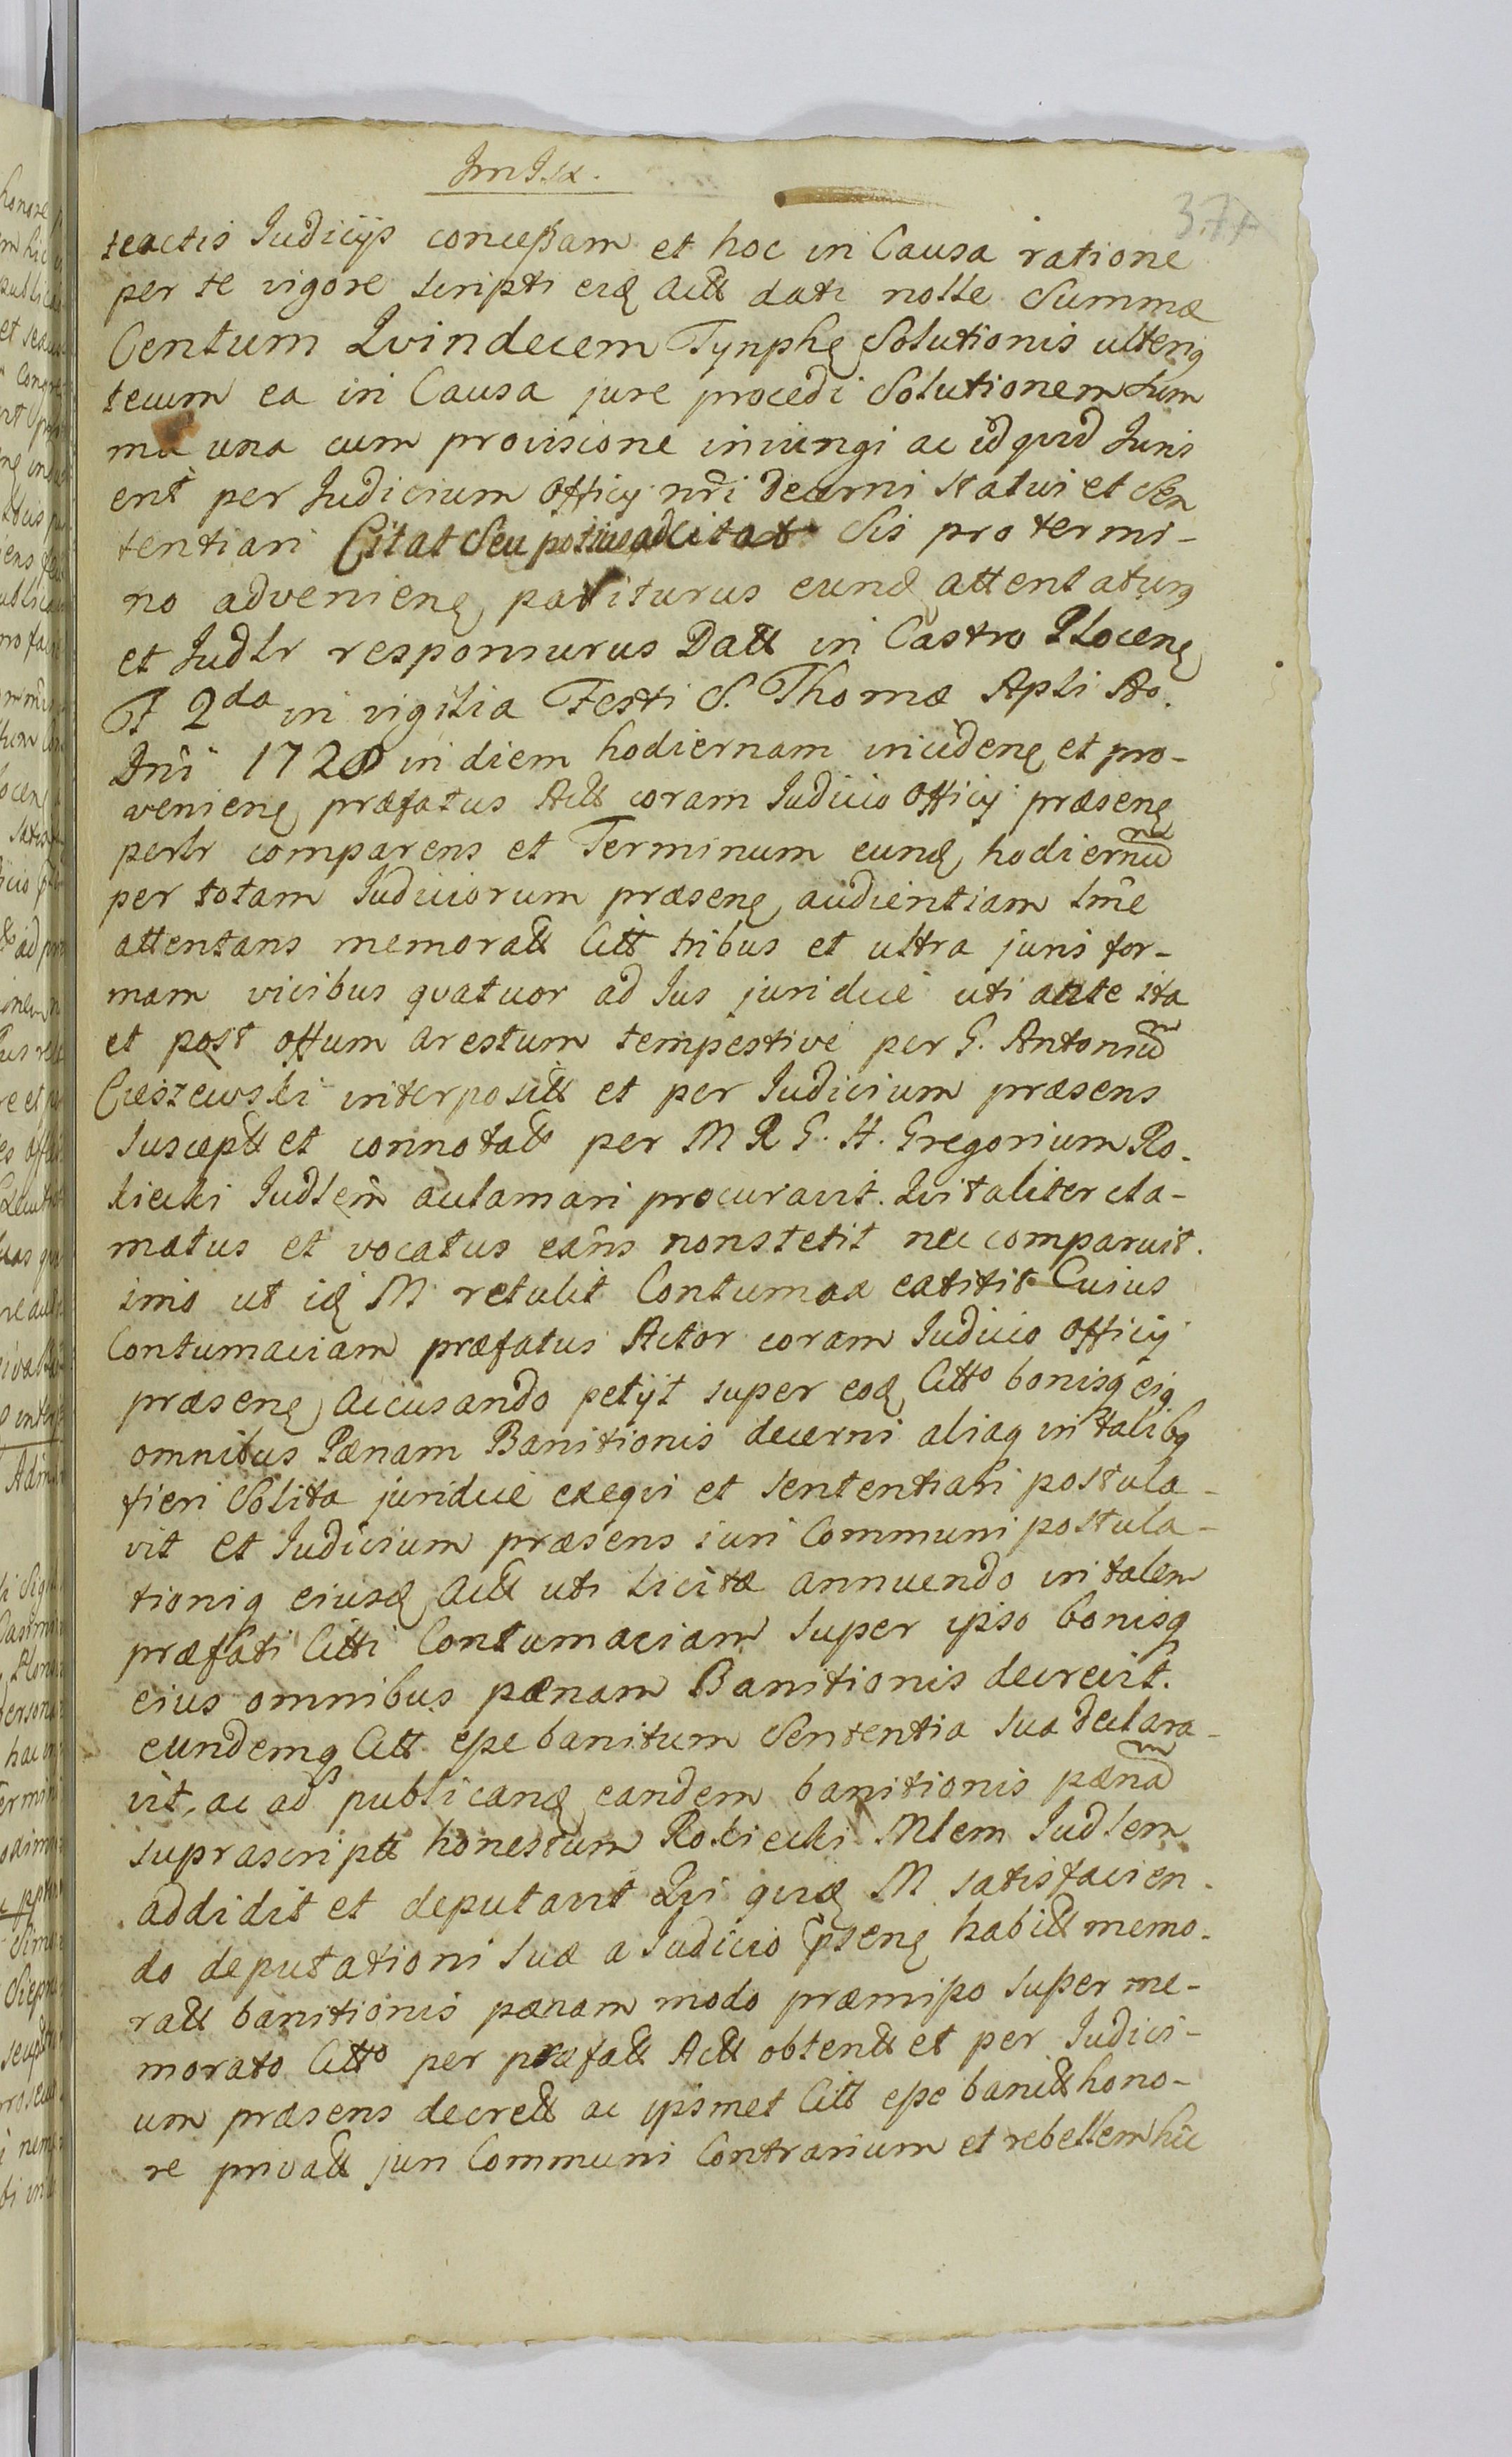 teactis Iudicijs concessam et hoc in Causa ratione
per te vigore scripti eid Actt dati nolle Summæ
Centum Qvindecem Tynphe Solutionis ulteriq
tecum ea in Causa jure procedi Solutionem Sum
mæ una cum provisione iniungi ac id qvid Iuris
erit per Iudicium Officij nri decerni statui et Sen
tentiari Citat Seu potius adcitat Sis pro termi-
no advenien pariturus eund attentaturq
et Iudlr responsurus Datt in Castro Plocen
F 2da in vigilia Festi S. Thomæ Apli Ao.
Dni 1720 in diem hodiernam inciden et pro-
venien præfatus Actt coram Iudicio Officij præsen
perlr comparens et Terminum eund hodiernum
per totam Iudiciorum præsen audientiam lme
attentans memoratt Citt tribus et ultra juris for-
mam vicibus qvatuor ad Ius juridice uti ante ita
et post offum arestum tempestive per G. Antonium
Cieszewski interposittt et per Iudicium præsens
susceptt et connotatt per M R G. H. Gregorium Ro-
kicki Iudlem aclamari procuravit. Qvi taliter cla-
matus et vocatus eams non stetit nec comparuit.
imo ut id M retulit Contumax extitit Cuius
Contumaciam præfatus Actor coram Iudicio Officij
præsen accusando petijt super eod Citto bonisq eiq
omnibus Pænam Banitionis decerni aliaq in talibq
fieri Solita juridice exeqvi et sententiari postula-
vit et Iudicium præsens iuri Communi postula-
tioniq eiusd Actt uti licitæ annuendo in talem
præfati Citti Contumaciam super ipso bonisq
eius omnibus pænam Banitionis decrevit.
eundemq Citt esse banitum Sententia sua declara-
vit, ac ad publicand eandem banitionis pænam
suprascriptt honestum Rokicki Mlem Iudlem
addidit et deputavit Qvi qvid M satisfacien-
do deputationi suæ a Iudicio psen habitt memo-
ratt banitionis pænam modo præmisso super me-
morato Citto per præfatt Actt obtentt et per Iudici-
um præsens decrett ac ipsmet Citt esse banitt hono-
re privatt juri Communi Contrarium et rebellem hic